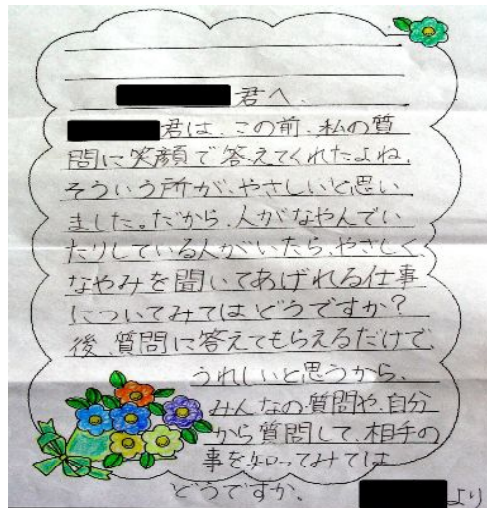 君へ、
君は、この前、私の質
問に笑顔で答えてくれたよね、
そういう所が、やさしいと思い
ました。だから、人がなやんでい
たりしている人がいたら、やさしく、
なやみを聞いてあげれる仕事
についてみてはどうですか?
後、質問に答えてもらえるだけで、
うれしいと思うから、
みんなの質問や、自分
から質問して、相手の
事を知ってみては
どうですか、
より